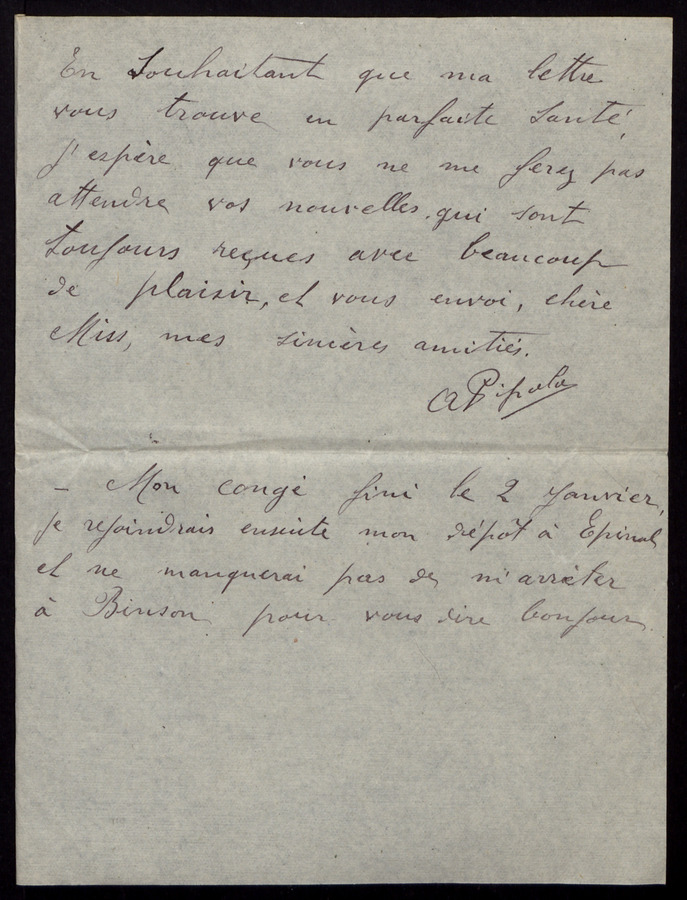 En souhaitant que ma lettre
vous trouve en parfaite santé,
j'espère que vous ne me ferez pas
attendre vos nouvelles, qui sont
toujours reçues avec beaucoup
de plaisir, et vous envoi, chère
Miss, mes sincères amitiés.
A Pipolo
- Mon congé fini le 2 Janvier,
je rejoindrais ensuite mon dépôt à Épinal
et ne manquerai pas de m'arrèter
à Binson pour vous dire bonjour.